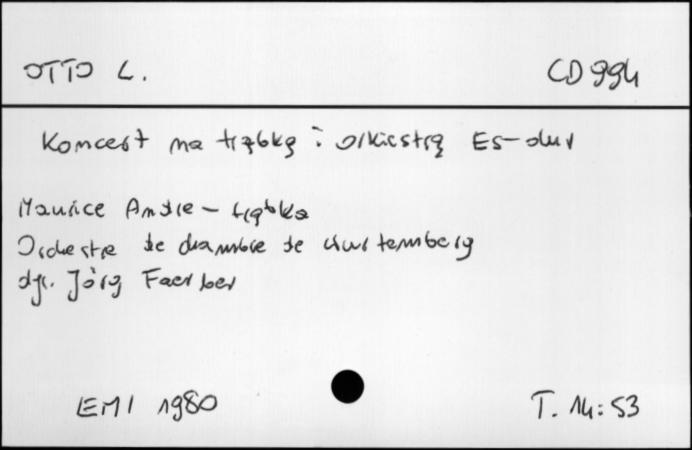 OTTO L. CD 994
Koncert na trąbkę i orkiestrę Es-dur
Maurice Andre - trąbka
Orchestre de chambre de Wurtemberg
dyr. Jörg Faerber
EMI 1980 T. 14:53